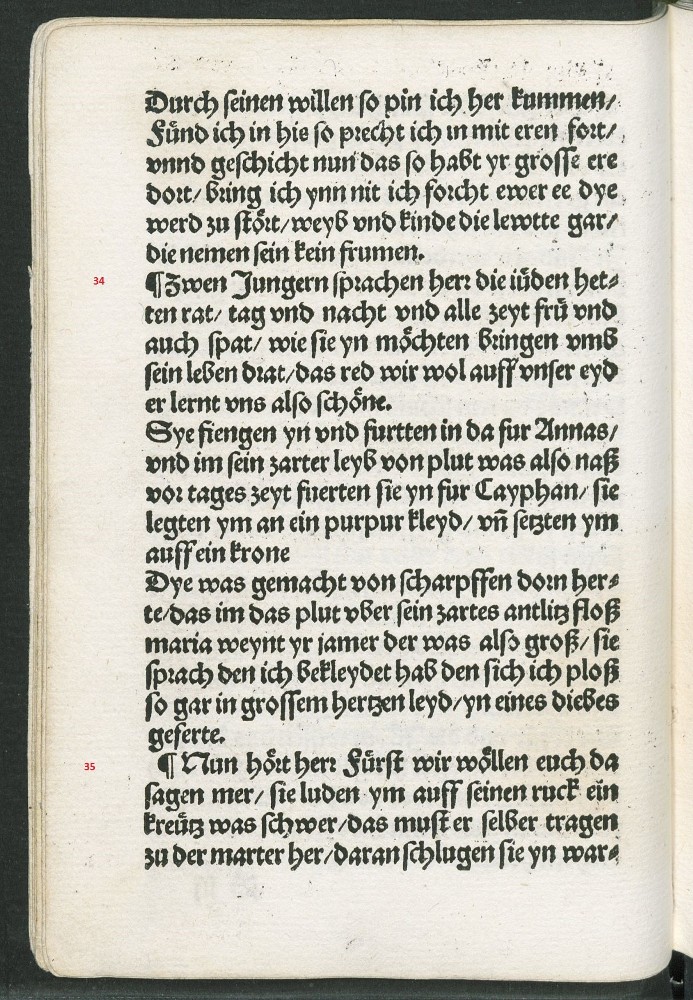 Durch seinen willen so pin ich her kummen/
Fünd ich in hie so precht ich in mit eren fort/
vnnd geschicht nun das so habt yr grosse ere
dort/ bring ich ynn nit ich forcht ewer ee dye
werd zu stört/ weyb vnd kinde die lewtte gar/
die nemen sein kein frumen.
34
¶ Zwen Jungern sprachen herr die iüden het⸗
ten rat/ tag vnd nacht vnd alle zeyt frü vnd
auch spat/ wie sie yn möchten bringen vmb
sein leben drat/ das red wir wol auff vnser eyd
er lernt vns also schöne.
Sye fiengen yn vnd furtten in da fur Annas/
vnd im sein zarter leyb von plut was also naß
vor tages zeyt fuerten sie yn fur Cayphan/ sie
legten ym an ein purpur kleyd/ vñ setzten ym
auff ein krone
Dye was gemacht von scharpffen dorn her⸗
te/ das im das plut vber sein zartes antlitz floß
maria weynt yr jamer der was also groß/ sie
sprach den ich bekleydet hab den sich ich ploß
so gar in grossem hertzen leyd/ yn eines diebes
geferte.
35
¶ Nun hört herr Fürst wir wöllen euch da
sagen mer/ sie luden ym auff seinen ruck ein
kreütz was schwer/ das must er selber tragen
zu der marter her/ daran schlugen sie yn war⸗